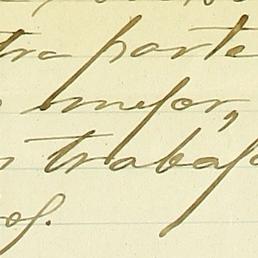 tra parte
mejor,
trabajo
os.